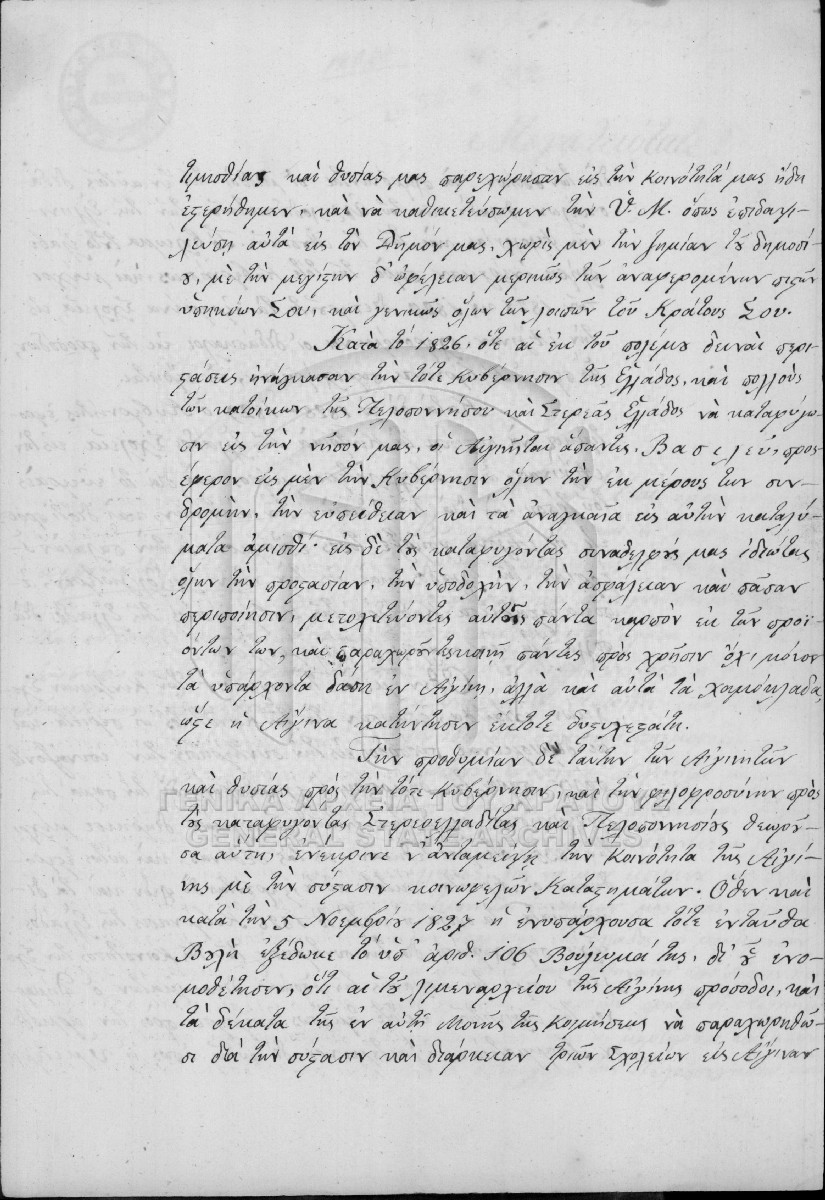 τιμισθίας καὶ θυσίας μας παρεχώρησαν εἰς τὴν κοινότητά μας ἤδη
ἐστερήθημεν, καὶ νὰ καθικετεύσωμεν τὴν Ὑ. Μ. ὅπως ἐπιδαψι-
λεύσῃ αὐτὰ εἰς τὸν Δῆμόν μας, χωρὶς μὲν τὴν ζημίαν τοῦ δημοσί-
ου, μὲ τὴν μεγίστην δ' ὠφέλειαν μερικῶς τῶν ἀναφερομένων πιστῶν
ὑπηκόων Σου, καὶ γενικῶς ὅλων τῶν λοιπῶν τοῦ Κράτους Σου.
Κατὰ τὸ 1826, ὅτε αἱ ἐκ τοῦ πολέμου δειναὶ περι-
στάσεις ἠνάγκασαν τὴν τότε Κυβέρνησιν τῆς Ἑλλάδος, καὶ πολλοὺς
τῶν κατοίκων τῆς Πελοποννήσου καὶ Στερεᾶς Ἑλλάδος νὰ καταφύγω-
σιν εἰς τὴν νῆσόν μας, οἱ Αἰγινῆται ἅπαντες, Βασιλεῦ, προς-
έφερον εἰς μὲν τὴν Κυβέρνησιν ὅλην τὴν ἐκ μέρους των συν-
δρομὴν, τὴν εὐπείθειαν καὶ τὰ ἀναγκαῖα εἰς αὐτὴν καταλύ-
ματα ἀμισθί· εἰς δὲ τοὺς καταφυγόντας συναδελφούς μας ἰδιώτας
ὅλην τὴν προστασίαν, τὴν ὑποδοχὴν, τὴν ἀσφάλειαν καὶ πᾶσαν
περιποίησιν, μετοχετεύοντες αὐτοῖς πάντα καρπὸν ἐκ τῶν προϊ-
όντων των, καὶ παραχωροῦντες κοινῇ πάντες πρὸς χρῆσιν ὄχι μόνον
τὰ ὑπάρχοντα δάση ἐν Αἰγίνῃ, ἀλλὰ καὶ αὐτὰ τὰ χαμόκλαδα,
ὥστε ἡ Αἴγινα κατήντησεν ἔκτοτε δυστυχεστάτη.
Τὴν προθυμίαν δὲ ταύτην τῶν Αἰγινητῶν
καὶ θυσίας πρὸς τὴν τότε Κυβέρνησιν, καὶ τὴν φιλοφροσύνην πρὸς
τοὺς καταφυγόντας Στερεοελλαδίτας καὶ Πελοποννησίους θεωροῦ-
σα αὕτη, ἐνέκρινε ν' ἀνταμείψῃ τὴν Κοινότητα τῆς Αἰγί-
νης μὲ τὴν σύστασιν κοινωφελῶν Καταστημάτων. Ὅθεν καὶ
κατὰ τὴν 5 Νοεμβρίου 1827 ἡ ἐνυπάρχουσα τότε ἐνταῦθα
Βουλὴ ἐξέδωκε τὸ ὑπ' ἀριθ. 106 Βούλευμά της, δι' οὗ ἐνο-
μοθέτησεν, ὅτι αἱ τοῦ λιμεναρχείου τῆς Αἰγίνης πρόσοδοι, καὶ
τὰ δέκατα τῆς ἐν αὐτῇ Μονῆς τῆς Κοιμήσεως νὰ παραχωρηθῶ-
σι διὰ τὴν σύστασιν καὶ διάρκειαν τριῶν Σχολείων εἰς Αἴγιναν
ΓΕΝΙΚΑ ΑΡΧΕΙΑ ΤΟΥ ΚΡΑΤΟΥΣ
GENERAL STATE ARCHIVES